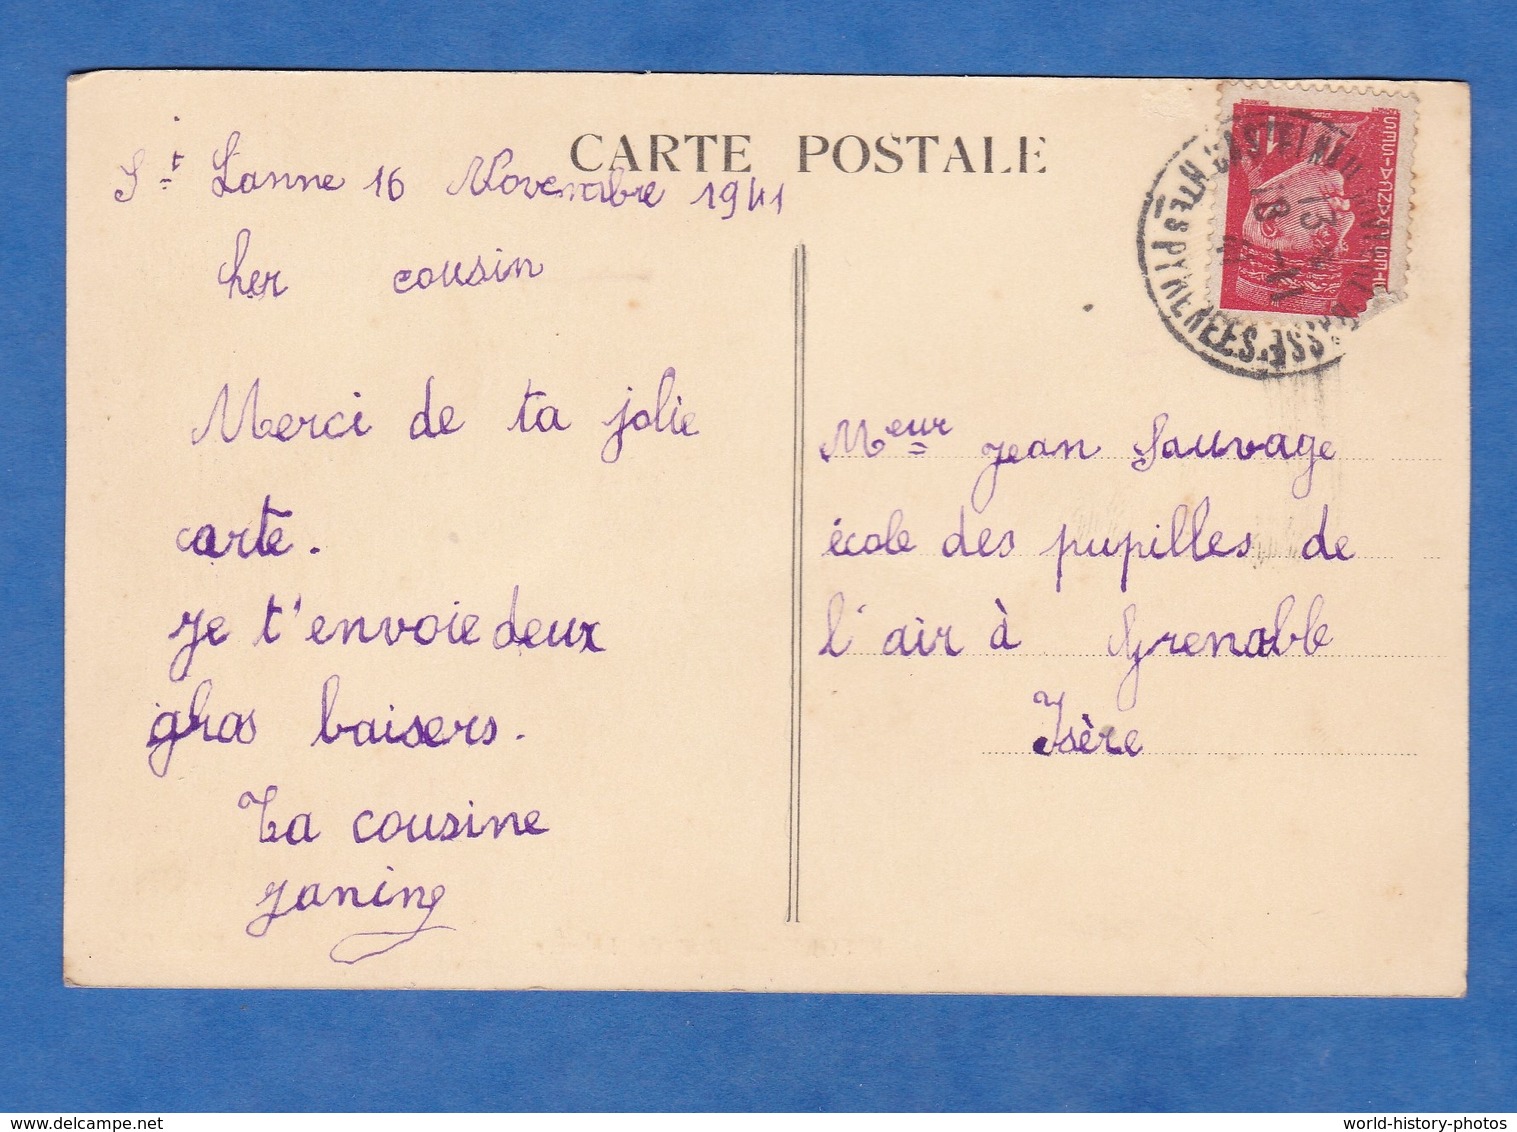 CARTE POSTALE
St Lanne 16 Novembre 1941
cher cousin
Merci de ta jolie
carte.
Je t'envoie deux
gros baisers.
Ta cousine
Janine
Meur Jean Sauvage
école des pupilles de
l'air à Grenoble
Isère
CASTELNAU RIVIERE BASSE
HTES PYRENEES
13
18 - XI
41
POSTES FRANCAISES
delcampe.net
world-history-photos